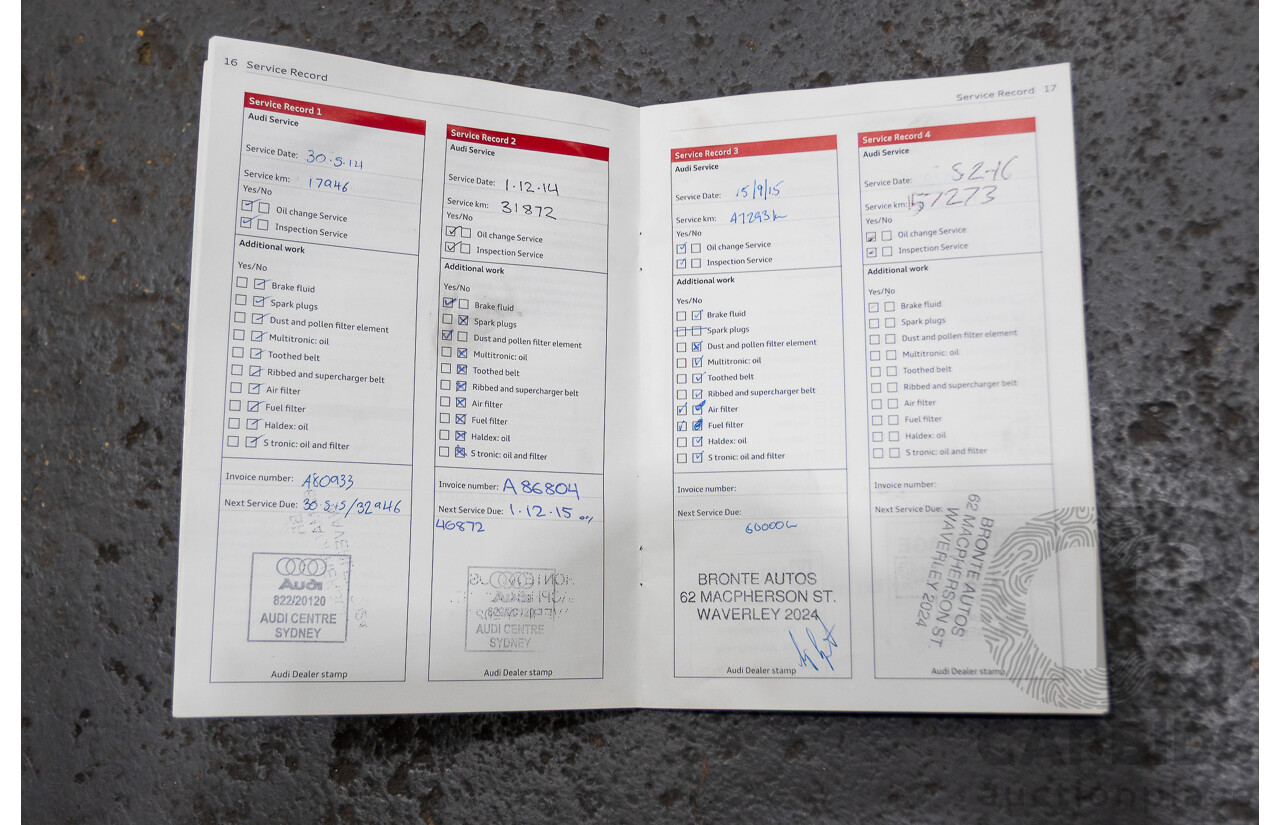 16 Service Record
Service Record 1
Audi Service
Service Date: 30.5.14
Service km: 17946
Yes/No
Oil change Service
Inspection Service
Additional work
Yes/No
Brake fluid
Spark plugs
Dust and pollen filter element
Multitronic: oil
Toothed belt
Ribbed and supercharger belt
Air filter
Fuel filter
Haldex: oil
S tronic: oil and filter
Invoice number: A80933
Next Service Due: 30.5.15/32946
Audi
822/20120
AUDI CENTRE
SYDNEY
Audi Dealer stamp
Service Record 2
Audi Service
Service Date: 1.12.14
Service km: 31872
Yes/No
Oil change Service
Inspection Service
Additional work
Yes/No
Brake fluid
Spark plugs
Dust and pollen filter element
Multitronic: oil
Toothed belt
Ribbed and supercharger belt
Air filter
Fuel filter
Haldex: oil
S tronic: oil and filter
Invoice number: A 86804
Next Service Due: 1.12.15
46872
AUDI CENTRE
SYDNEY
Audi Dealer stamp
Service Record 17
Service Record 3
Audi Service
Service Date: 15/9/15
Service km: 47293k
Yes/No
Oil change Service
Inspection Service
Additional work
Yes/No
Brake fluid
Spark plugs
Dust and pollen filter element
Multitronic: oil
Toothed belt
Ribbed and supercharger belt
Air filter
Fuel filter
Haldex: oil
S tronic: oil and filter
Invoice number:
Next Service Due:
60000k
BRONTE AUTOS
62 MACPHERSON ST.
WAVERLEY 2024
Audi Dealer stamp
Service Record 4
Audi Service
Service Date: 5 2-16
Service km: 57273
Yes/No
Oil change Service
Inspection Service
Additional work
Yes/No
Brake fluid
Spark plugs
Dust and pollen filter element
Multitronic: oil
Toothed belt
Ribbed and supercharger belt
Air filter
Fuel filter
Haldex: oil
S tronic: oil and filter
Invoice number:
Next Service Due:
BRONTE AUTOS
62 MACPHERSON ST.
WAVERLEY 2024
Audi Dealer stamp